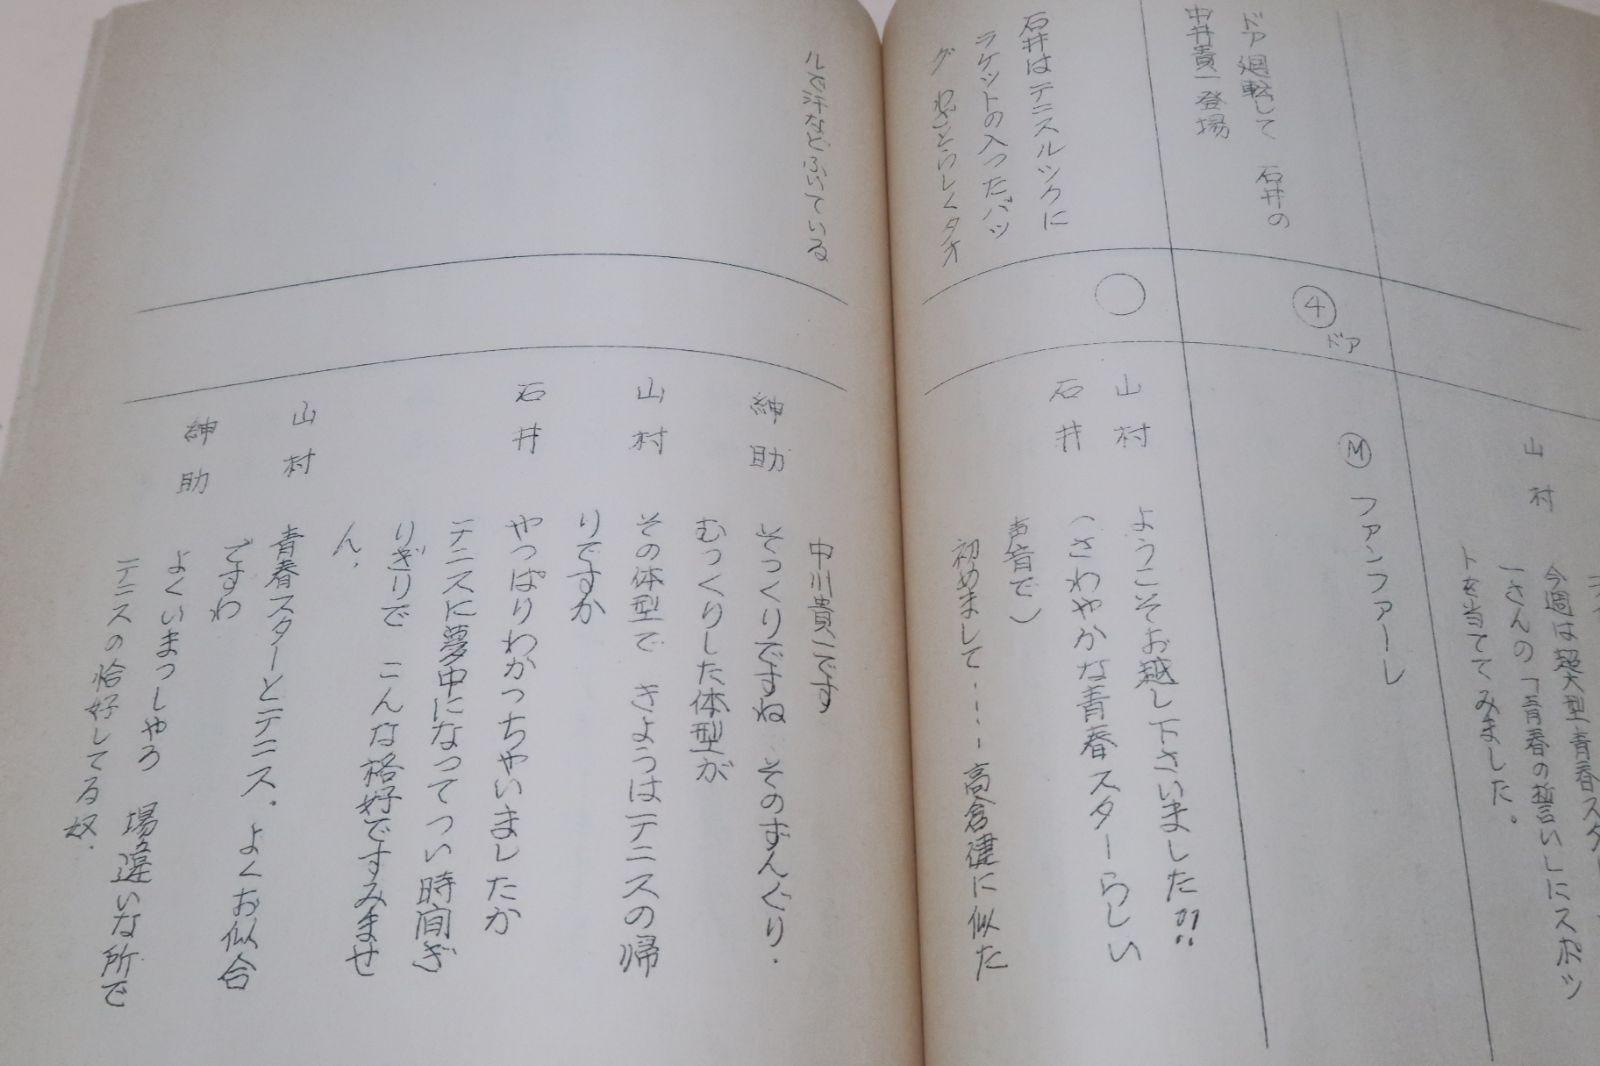 山村
今週は超大型青春スター
一さんの「青春の誓い」にスポッ
トを当ててみました。
④ ドア
Ⓜ ファンファーレ
ドア廻転して 石井の
中井貴一登場
○
山村 ようこそお越し下さいました!!
石井 (さわやかな青春スターらしい
声音で)
初めまして・・・・高倉健に似た
石井はテニスルックに
ラケットの入ったバッ
グ わざとらしくタオ
ルで汗などふいている
中川貴一です
紳助 そっくりですね そのずんぐり・
むっくりした体型が
山村 その体型で きょうはテニスの帰
りですか
石井 やっぱりわかっちゃいましたか
テニスに夢中になってつい時間ぎ
りぎりで こんな格好ですみませ
ん.
山村 青春スターとテニス。よくお似合
ですわ
紳助 よくいまっしゃろ 場違いな所で
テニスの恰好してる奴.